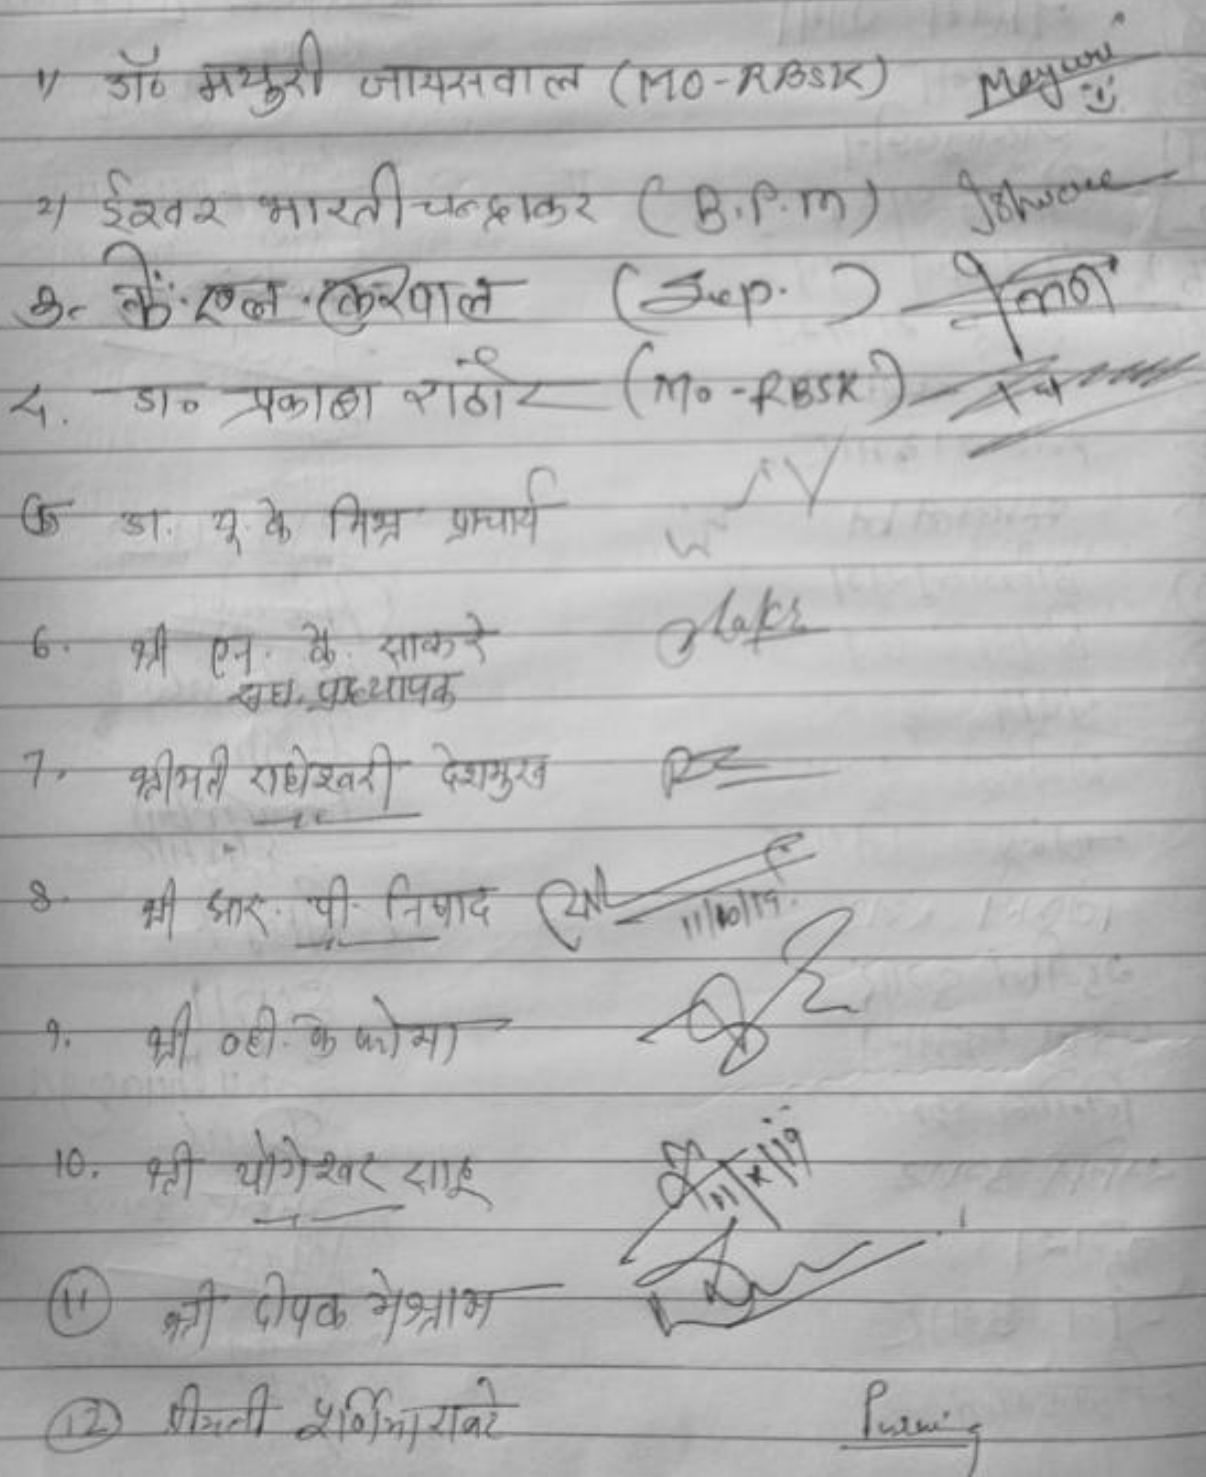 1) डॉ० मयुरी जायसवाल (MO-RBSK) Mayuri
2) ईश्वर भारती चन्द्राकर (B.P.M) Ishware
3. (Sup.)
4. डा० प्रकाश राठोर (MO-RBSK)
5 डा. यू. के मिश्र प्राचार्य
6. श्री एन. के. साकरे
सहा. प्राध्यापक
7. श्रीमती राधेश्वरी देशमुख
8. श्री आर. पी. निषाद 11/10/19.
9. श्री व्ही. के कोमा
10. श्री योगेश्वर साहू 11/x/19
11 श्री दीपक मेश्राम
12 श्रीमती पूर्णिमा रावटे